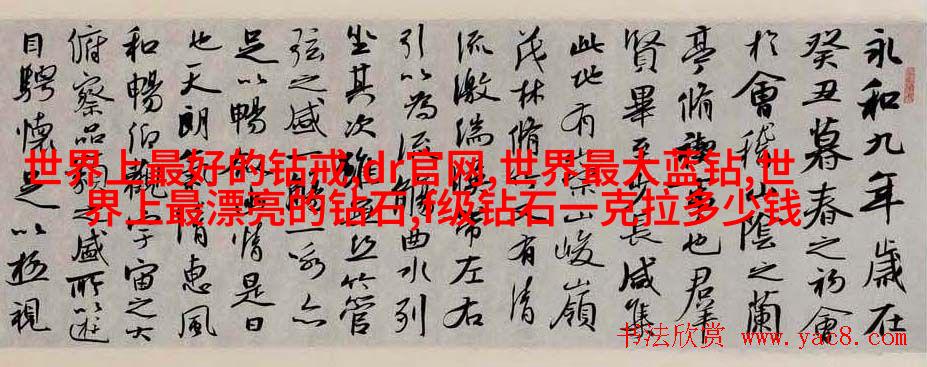 永和九年歲在
癸丑暮春之初會
於會稽山陰之蘭
亭脩禊事也群
賢畢至少長咸集
此地有崇山峻嶺
茂林脩竹又有清
流激湍暎帶左右
引以為流觴曲水列
坐其次雖無絲竹管
弦之盛一觴一詠亦
足以暢敘幽情是日
也天朗氣清惠風
和暢仰觀宇宙之大
俯察品類之盛所以遊
目騁懷足以極視
世界上最好的钻戒,dr官网,世界最大蓝钻,世
界上最漂亮的钻石,f级钻石一克拉多少钱
书法欣赏 www.yac8.com